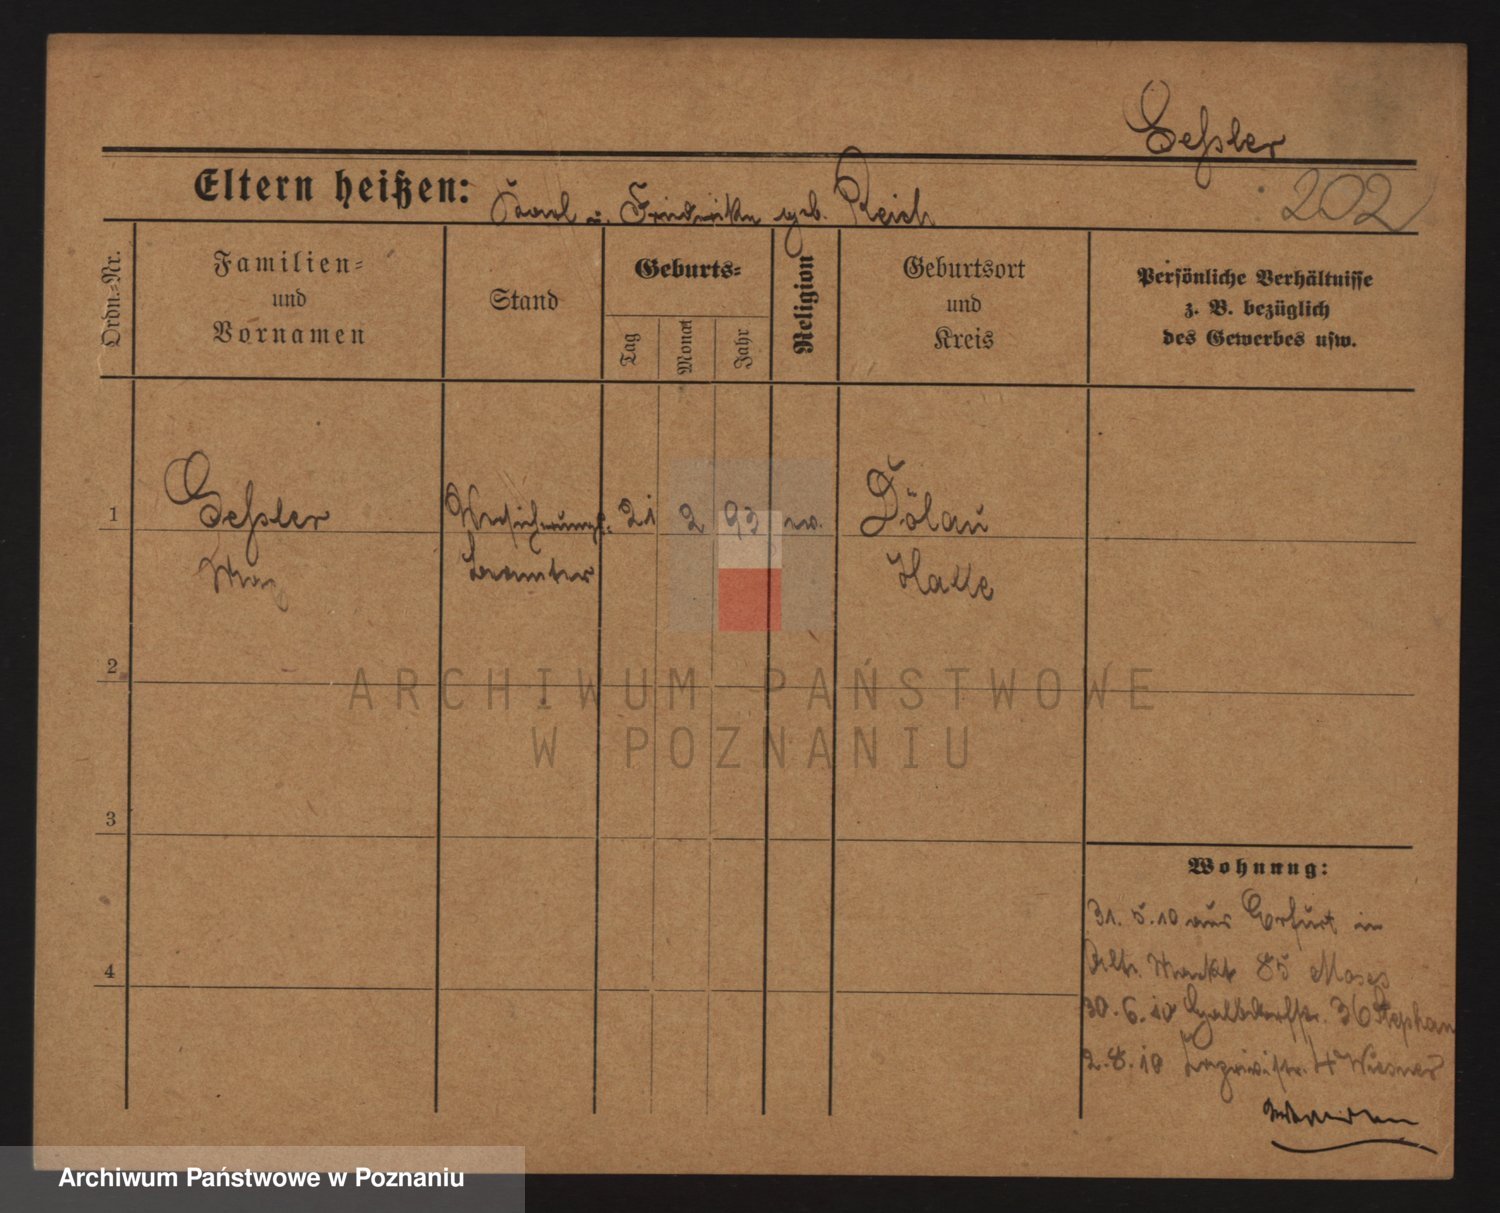 Geßler
Eltern heißen: Karl u. Friderike geb. Reich
202
Ordn.=Nr.
Familien=
und
Vornamen
Stand
Geburts=
Tag
Monat
Jahr
Religion
Geburtsort
und
Kreis
Persönliche Verhältnisse
z. B. bezüglich
des Gewerbes usw.
1
Geßler
Max
Versicherungs=
beamter
21 2 93 ev.
Dölau
Halle
2
ARCHIWUM PAŃSTWOWE
W POZNANIU
3
Wohnung:
31. 5. 10 aus Erfurt in
Alt. Markt 85 Moses
4
30. 6. 10 36 Stephan
2. 8. 10 4 Wiesner
Archiwum Państwowe w Poznaniu